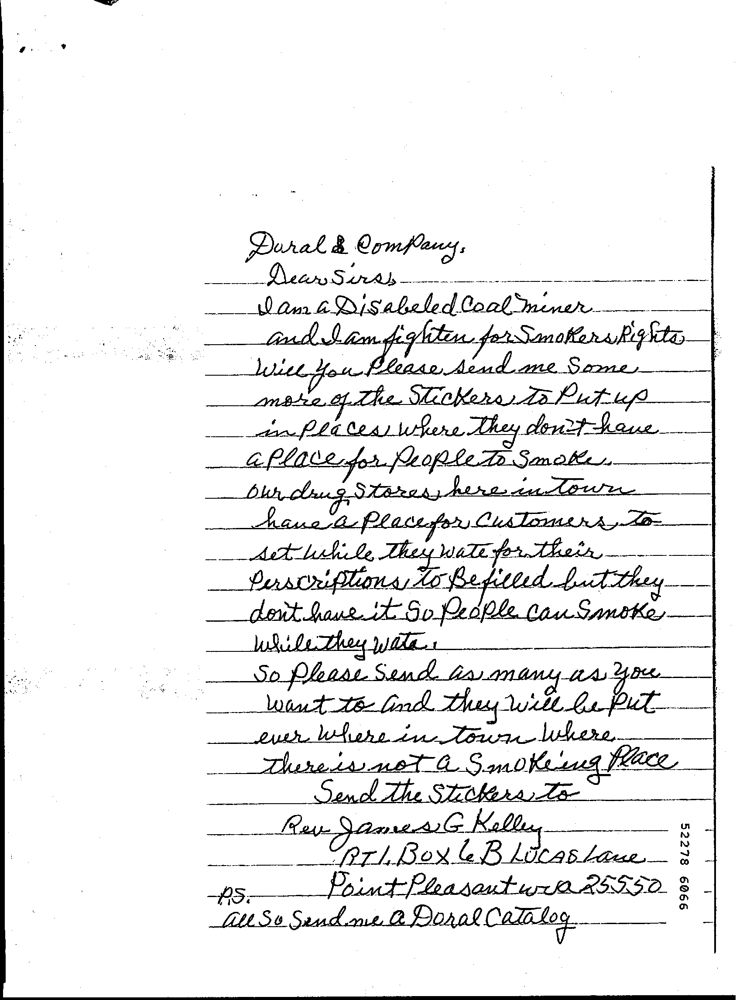 Dural & Company,
Dear Sirs,
I am a Disabeled Coal miner
and I am fighten for Smokers Rights
Will You Please send me Some
more of the Stickers to Put up
in Places where they don't have
a Place for People to Smoke.
Our drug Stores here in town
have a Place for Customers to
set while they wate for their
Perscriptions to Be filled but they
dont have it So People Can Smoke
while they wate.
So Please Send as many as you
want to and they will be Put
ever where in town where
there is not a Smokeing Place
Send the Stickers to
Rev James G Kelley
RT1, Box 6 B LUCAS Lane
Point Pleasant wva 25550
P.S.
all So Send me a Doral Catalog
52278 6066